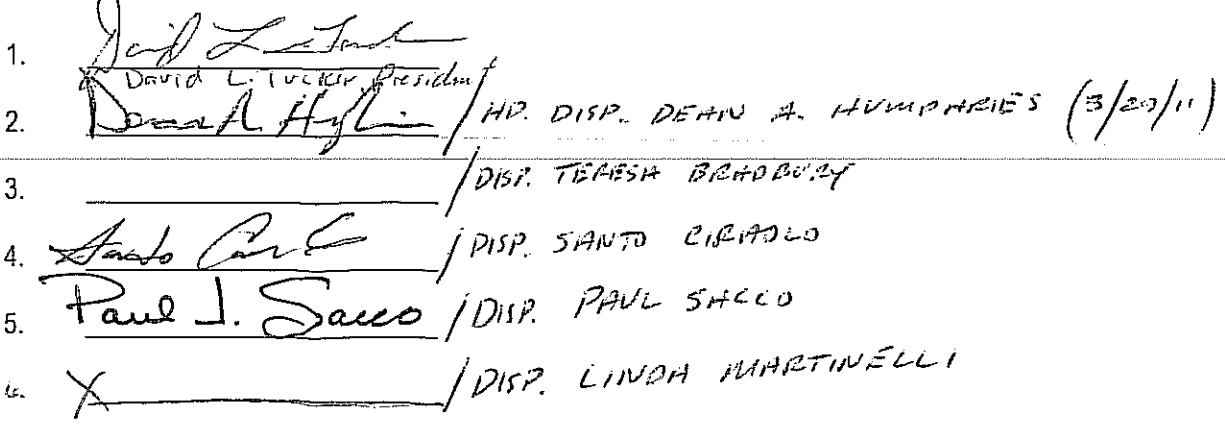 1. David L Tucker
X David L. Tucker, President
2. Dean A. Humphries / HD. DISP. DEAN A. HUMPHRIES (3/29/11)
3. / DISP. TERESA BRADBURY
4. Santo / DISP. SANTO CIRAOLO
5. Paul J. Sacco / DISP. PAUL SACCO
6. X / DISP. LINDA MARTINELLI